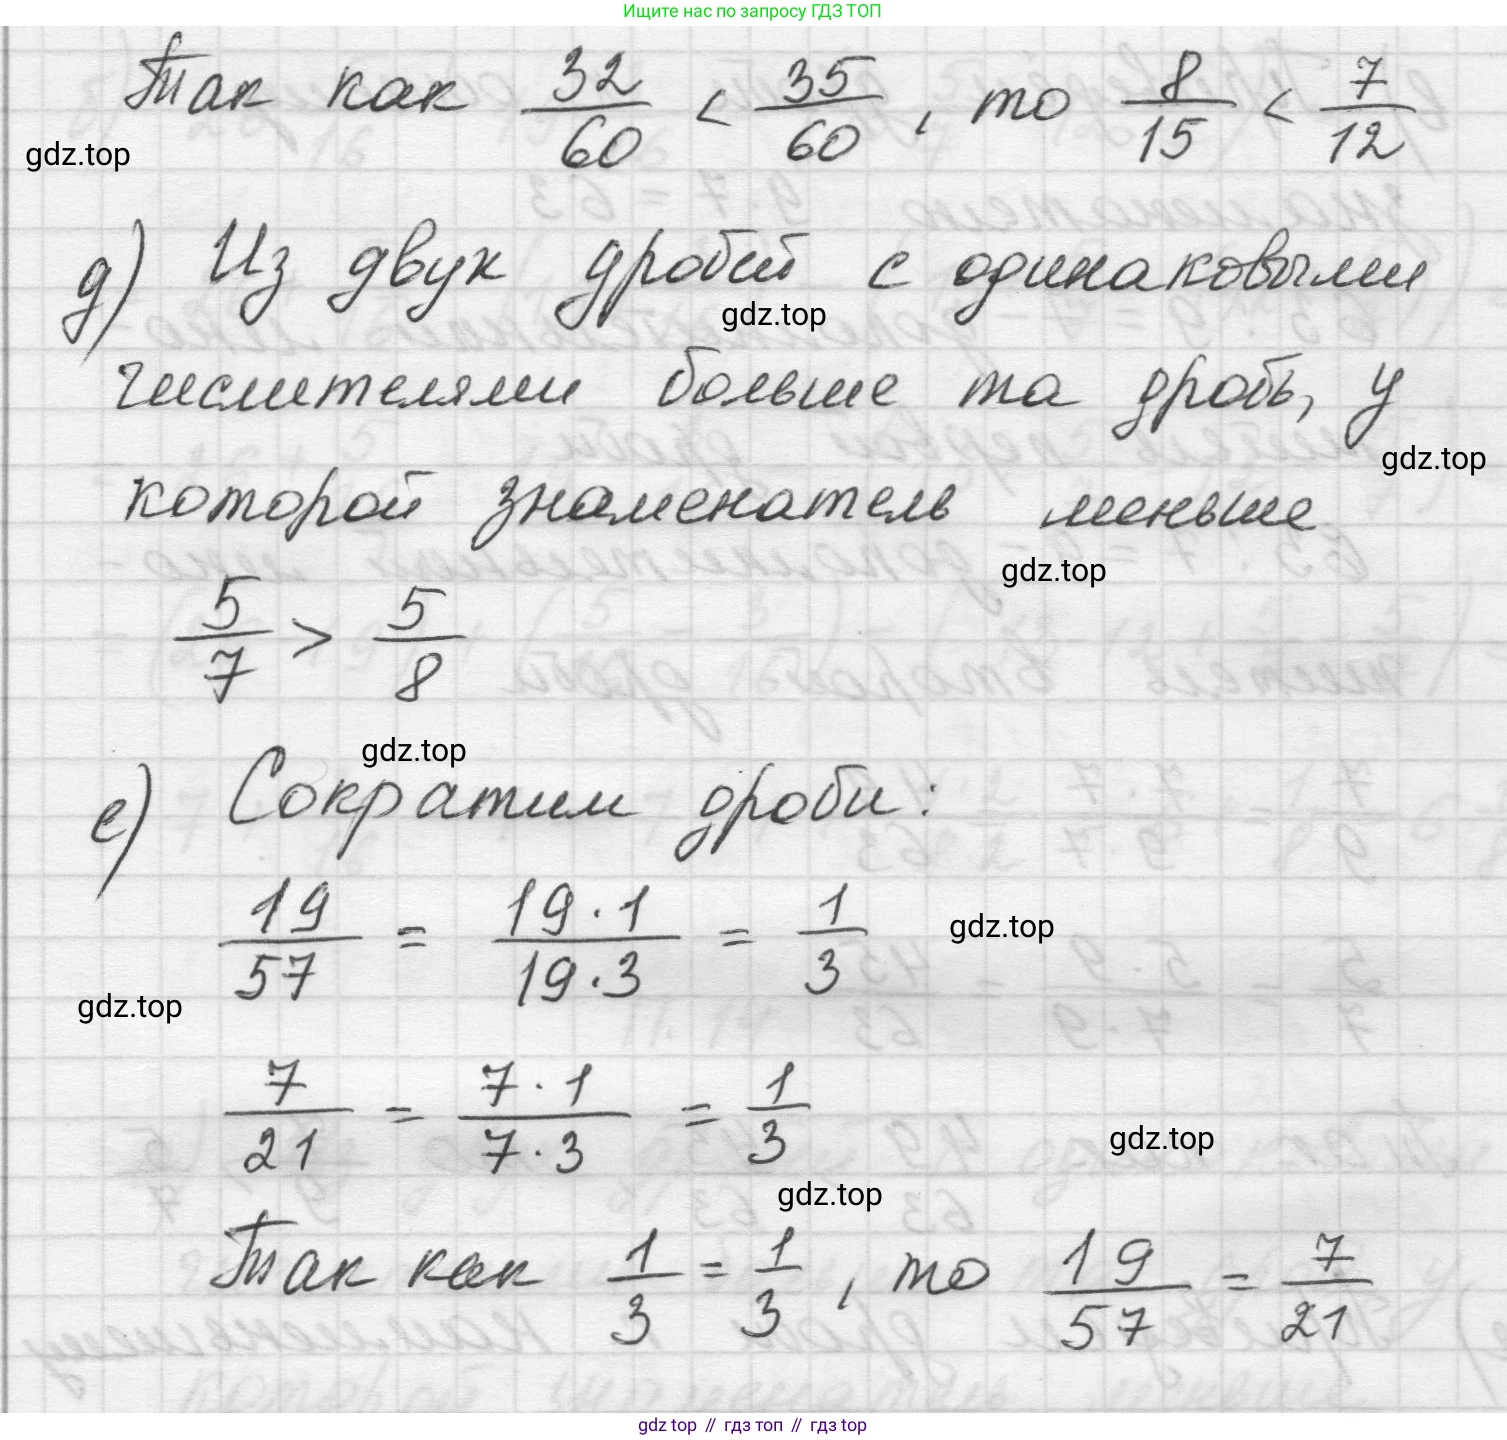 Ищите нас по запросу ГДЗ ТОП
Так как 32/60 < 35/60, то 8/15 < 7/12
gdz.top
д) Из двух дробей с одинаковыми
gdz.top
числителями больше та дробь, у
gdz.top
которой знаменатель меньше
gdz.top
5/7 > 5/8
gdz.top
е) Сократим дроби:
19/57 = 19·1/19·3 = 1/3
gdz.top
gdz.top
7/21 = 7·1/7·3 = 1/3
gdz.top
gdz.top
Так как 1/3 = 1/3, то 19/57 = 7/21
gdz top // гдз топ // гдз top